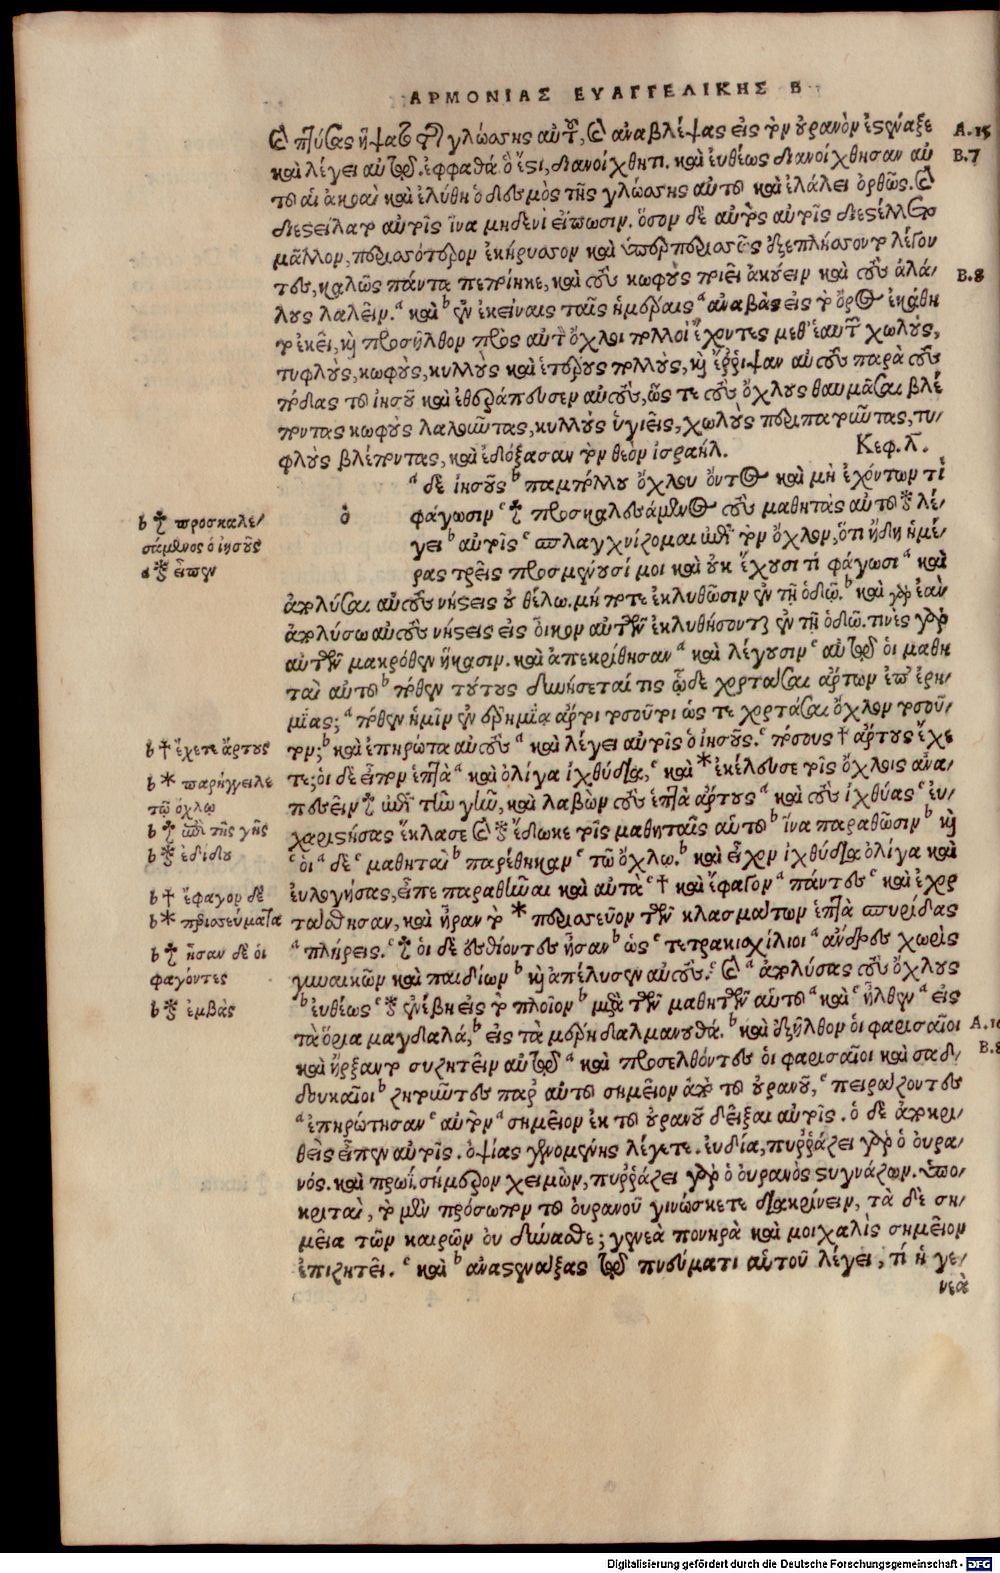 ΑΡΜΟΝΙΑΣ ΕΥΑΓΓΕΛΙΚΗΣ Β
καὶ πτύσας ἥψατο τῆς γλώσσης αὐτοῦ, καὶ ἀναβλέψας εἰς τὸν οὐρανὸν ἐστέναξε
A.15
καὶ λέγει αὐτῷ. ἐφφαθά. ὅ ἔστι, διανοίχθητι. καὶ εὐθέως διανοίχθησαν αὐ
B.7
τοῦ αἱ ἀκοαὶ καὶ ἐλύθη ὁ δεσμὸς τῆς γλώσσης αὐτοῦ καὶ ἐλάλει ὀρθῶς. καὶ
διεστείλατο αὐτοῖς ἵνα μηδενὶ εἴπωσιν. ὅσον δὲ αὐτὸς αὐτοῖς διεστέλλετο
μᾶλλον, περισσότερον ἐκήρυσσον καὶ ὑπερπερισσῶς ἐξεπλήσσοντο λέγον
τες, καλῶς πάντα πεποίηκε, καὶ τοὺς κωφοὺς ποιεῖ ἀκούειν καὶ τοὺς ἀλά/
B.8
λους λαλεῖν. a καὶ b ἐν ἐκείναις ταῖς ἡμέραις a ἀναβὰς εἰς τὸ ὄρος ἐκάθη
το ἐκεῖ, καὶ προσῆλθον πρὸς αὐτὸν ὄχλοι πολλοὶ ἔχοντες μεθ' ἑαυτῶν χωλούς,
τυφλούς, κωφούς, κυλλοὺς καὶ ἑτέρους πολλούς, καὶ ἔῤῥιψαν αὐτοὺς παρὰ τοὺς
πόδας τοῦ ἰησοῦ καὶ ἐθεράπευσεν αὐτούς, ὥς τε τοὺς ὄχλους θαυμάσαι βλέ
ποντας κωφοὺς λαλοῦντας, κυλλοὺς ὑγιεῖς, χωλοὺς περιπατοῦντας, τυ/
φλοὺς βλέποντας, καὶ ἐδόξασαν τὸν θεὸν ἰσραήλ.
Κεφ. λ.
ὁ
a δὲ ἰησοῦς b παμπόλλου ὄχλου ὄντος καὶ μὴ ἐχόντων τί
φάγωσιν c ‡ προσκαλεσάμενος τοὺς μαθητὰς αὐτοῦ ⁑ λέ/
γει b αὐτοῖς c σπλαγχνίζομαι ἐπὶ τὸν ὄχλον, ὅτι ἤδη ἡμέ/
ρας τρεῖς προσμένουσί μοι καὶ οὐκ ἔχουσι τί φάγωσι a καὶ
ἀπολύσαι αὐτοὺς νήστεις οὐ θέλω. μήποτε ἐκλυθῶσιν ἐν τῇ ὁδῷ. b καὶ γὰρ ἐὰν
ἀπολύσω αὐτοὺς νήστεις εἰς οἶκον αὐτῶν ἐκλυθήσονται ἐν τῇ ὁδῷ. τινὲς γὰρ
αὐτῶν μακρόθεν ἥκασιν. καὶ ἀπεκρίθησαν a καὶ λέγουσιν c αὐτῷ οἱ μαθη
ταὶ αὐτοῦ b πόθεν τούτους δυνήσεταί τις ὧδε χορτάσαι ἄρτων ἐπ' ἐρη/
μίας; a πόθεν ἡμῖν ἐν ἐρημίᾳ ἄρτοι τοσοῦτοι ὥς τε χορτάσαι ὄχλον τοσοῦ/
τον; b καὶ ἐπηρώτα αὐτοὺς a καὶ λέγει αὐτοῖς ὁ ἰησοῦς. c πόσους † ἄρτους ἔχε
τε; οἱ δὲ εἶπον ἑπτὰ a καὶ ὀλίγα ἰχθύδια, c καὶ * ἐκέλευσε τοῖς ὄχλοις ἀνα/
πεσεῖν ‡ ἐπὶ τὴν γῆν, καὶ λαβὼν τοὺς ἑπτὰ ἄρτους a καὶ τοὺς ἰχθύας c εὐ/
χαριστήσας ἔκλασε καὶ ⁑ ἔδωκε τοῖς μαθηταῖς αὐτοῦ b ἵνα παραθῶσιν b καὶ
c οἱ a δὲ c μαθηταὶ b παρέθηκαν c τῷ ὄχλῳ. b καὶ εἶχον ἰχθύδια ὀλίγα καὶ
εὐλογήσας, εἶπε παραθεῖναι καὶ αὐτὰ c † καὶ ἔφαγον a πάντες c καὶ ἐχορ
τάσθησαν, καὶ ἦραν τὸ * περισσεῦον τῶν κλασμάτων ἑπτὰ σπυρίδας
a πλήρεις. c ‡ οἱ δὲ ἐσθίοντες ἦσαν b ὡς c τετρακισχίλιοι a ἄνδρες χωρὶς
γυναικῶν καὶ παιδίων b καὶ ἀπέλυσεν αὐτούς. c καὶ a ἀπολύσας τοὺς ὄχλους
b εὐθέως c ⁑ ἐνέβη εἰς τὸ πλοῖον b μετὰ τῶν μαθητῶν αὐτοῦ a καὶ c ἦλθεν a εἰς
τὰ ὅρια μαγδαλά, b εἰς τὰ μέρη δαλμανουθά. b καὶ ἐξῆλθον οἱ φαρισαῖοι
A.16
καὶ ἤρξαντο συζητεῖν αὐτῷ a καὶ προσελθόντες οἱ φαρισαῖοι καὶ σαδ/
B.8
δουκαῖοι b ζητοῦντες παρ' αὐτοῦ σημεῖον ἀπὸ τοῦ οὐρανοῦ, c πειράζοντες
a ἐπηρώτησαν c αὐτὸν a σημεῖον ἐκ τοῦ οὐρανοῦ δεῖξαι αὐτοῖς. ὁ δὲ ἀποκρι/
θεὶς εἶπεν αὐτοῖς. ὀψίας γενομένης λέγετε. εὐδία, πυῤῥάζει γὰρ ὁ οὐρα/
νός. καὶ πρωΐ, σήμερον χειμὼν, πυῤῥάζει γὰρ ὁ οὐρανὸς στυγνάζων. ὑπο/
κριταὶ, τὸ μὲν πρόσωπον τοῦ οὐρανοῦ γινώσκετε διακρίνειν, τὰ δὲ ση/
μεῖα τῶν καιρῶν οὐ δύνασθε; γενεὰ πονηρὰ καὶ μοιχαλὶς σημεῖον
ἐπιζητεῖ. c καὶ b ἀναστενάξας τῷ πνεύματι αὐτοῦ λέγει, τί ἡ γε/
νεὰ
b ‡ προσκαλε/
σάμενος ὁ ἰησοῦς
a ⁑ εἶπεν
b † ἔχετε ἄρτους
b * παρήγγειλε
τῷ ὄχλῳ
b ‡ ἐπὶ τῆς γῆς
b ⁑ ἐδίδου
b † ἔφαγον δὲ
b * περισσεύματα
b ‡ ἦσαν δὲ οἱ
φαγόντες
b ⁑ ἐμβὰς
Digitalisierung gefördert durch die Deutsche Forschungsgemeinschaft - DFG